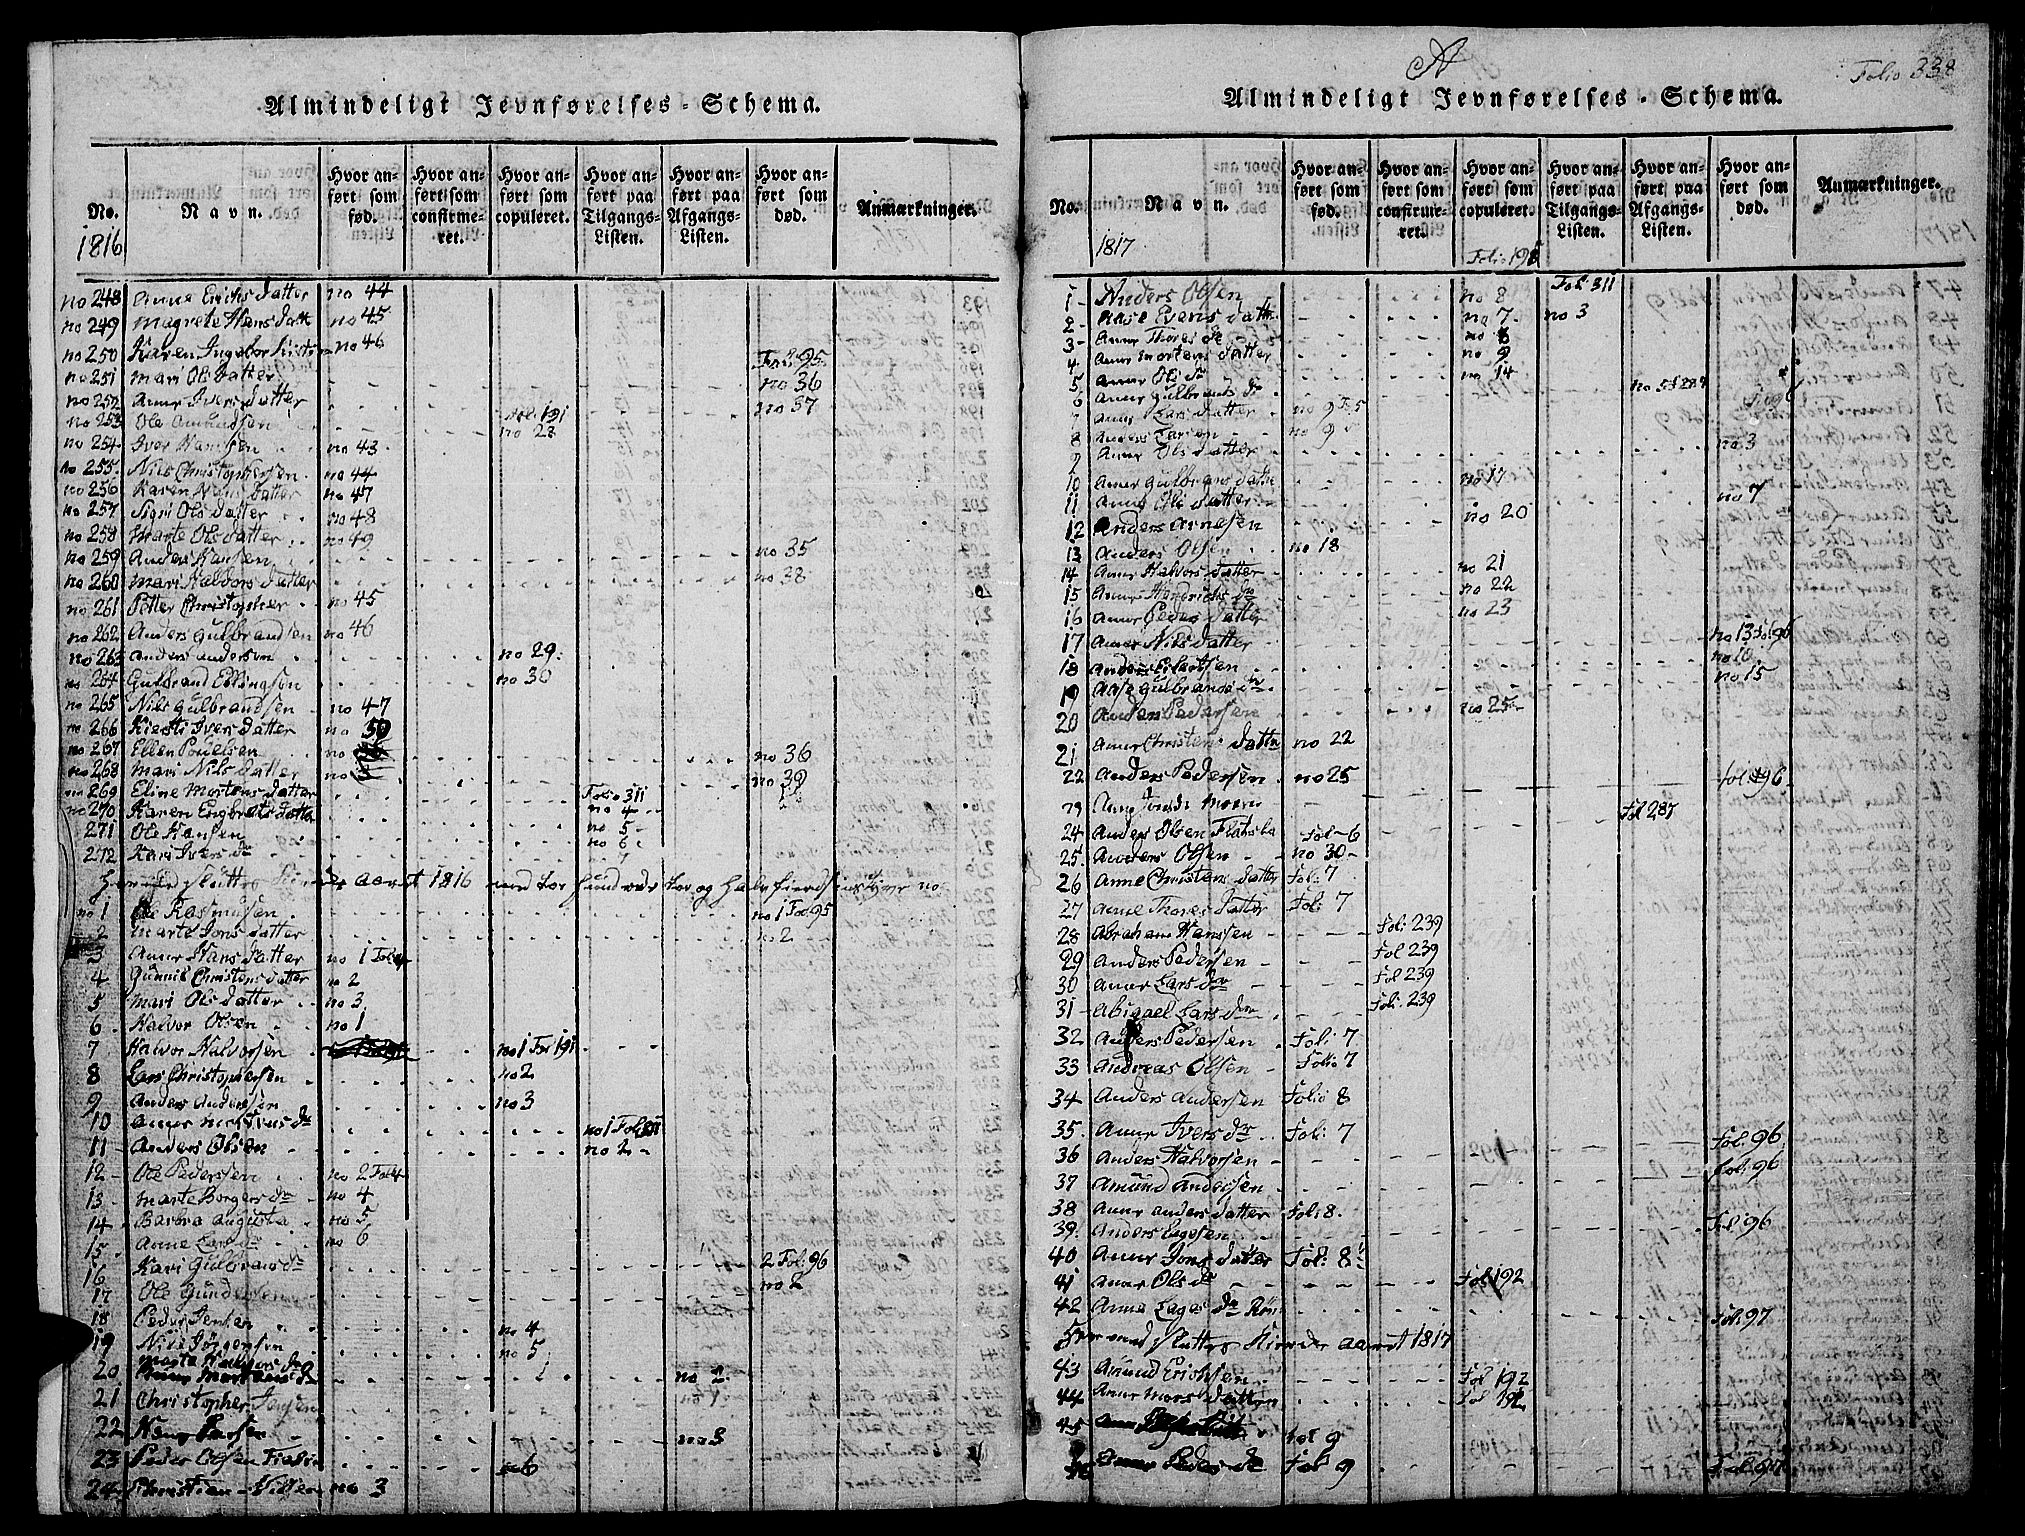 Almindeligt Jevnførelses-Schema.
No. Navn. Hvor anført som fød. Hvor anført som confirmeret. Hvor anført som copuleret. Hvor anført paa Tilgangs-Listen. Hvor anført paa Afgangs-Listen. Hvor anført som død. Anmærkninger.
1816
no 248 Anne Erichs datter no 44
no 249 Magrete Hans datt no 45
no 250 Karen Ingebor no 46
no 251 Mari Ols datter Fol: 95 no 36
no 252 Anne Ivers datter no 37
no 253 Ole Amundsen Fol: 191 no 28
no 254 Iver Hansen no 43
no 255 Nils Christophersen no 44
no 256 Karen Hans datter no 47
no 257 Sigri Ols datter no 48
no 258 Marte Ols datter no 49
no 259 Anders Hansen no 35
no 260 Mari Halvors datter no 38
no 261 Petter Christopher no 45
no 262 Anders Gulbrandsen no 46
no 263 Anders Andersen no 29
no 264 Gulbrand Ellingsen no 30
no 265 Nils Gulbrandsen no 47
no 266 Kiersti Ivers datter no 50
no 267 Ellen Poulsen no no 36
no 268 Mari Nils datter no no 39
no 269 Eline Mortens datter Folio 311 no 4
no 270 Karen Engbrets datter no 5
271 Ole Hansen no 6
272 Kari Ivers dr 7
aaret 1816
no 1 Ole Rasmusen no 1 Fol: 95
2 Marte Jons datter no 2
3 Anne Hans datter no 1 Fol 4
4 Gunnil Christens datter no 2
5 Mari Ols datter no 3
6 Halvor Olsen no 1
7 Halvor Halvorsen no 1 Fol 191
8 Lars Christophersen no 2
9 Anders Andersen no 3
10 no 1 Fol: 311
11 Anders Olsen no 2
12 Ole Pedersen no 2 Fol 4
13 Marte Borgers dr no 4
14 Barbra Augusta no 5
15 Anne Lars dr no 6
16 Kari Gulbrands dr 2 Fol: 96
17 Ole Gundersen no 2
18 Peder Jensen no 4
19 Nils Jørgensen no 5
20 Marte no 2
21 Christopher Jensen
22 Hans Larsen no 3
23 Peder Olsen no 6
24 Christian no 3
A
Folio 338
Almindeligt Jevnførelses-Schema.
No. Navn. Hvor anført som fød. Hvor anført som confirmeret. Hvor anført som copuleret. Hvor anført paa Tilgangs-Listen. Hvor anført paa Afgangs-Listen. Hvor anført som død. Anmærkninger.
1817 Folio 191
1 Anders Olsen no 8 Fol: 311
2 Aase Evens datter no 7 no 3
3 Anne Thores dr no 8
4 Anne Mortens datter no 9
5 Anne Ols dr no 14
6 Anne Gulbrands dr
7 Anne Lars datter no 9 F 5
8 Anders Larsen no 9
9 Anne Ols datter no 3
10 Anne Gulbrans datter no 17
11 Anne Ols datter no 7
12 Anders Arnesen no 20
13 Anders Olsen no 18
14 Anne Halvors datter no 21
15 Anne Hendrichs dr no 22
16 Anne Peders datter no 23
17 Anne Nils datter no 13 Fol 96
18 Anders Eilertsen no 10
19 Aase Gulbrands dr no 15
20 Anders Pedersen no 25
21 Anne Christens datter no 22
22 Anders Pedersen no 25 fol: 96
23 Fol 287
24 Anders Olsen Fol- 6
25 Anders Olsen no 30
26 Anne Christens datter Fol: 7
27 Anne Thores datter Fol: 7
28 Abraham Hanssen Fol: 239
29 Anders Pedersen Fol 239
30 Anne Lars dr Fol 239
31 Abigael Lars dr Fol: 239
32 Anders Pedersen Fol: 7
33 Andreas Olsen Fol: 7
34 Anders Andersen Folio 8
35 Anne Ivers dr Fol: 7
36 Anders Halvorsen Fol. 96
37 Amund Andersen Fol: 96
38 Anne Anders datter Fol: 8
39 Anders Fol 96
40 Anne Jons datter Fol: 8
41 Anne Ols dr Fol 192
42 Anne dr Fol: 97
aaret 1817
43 Amund Erichsen Fol 192
44 Anne datter Fol 192
45 Fol 9
46 Anne Peders dr Fol 9 Fol 97